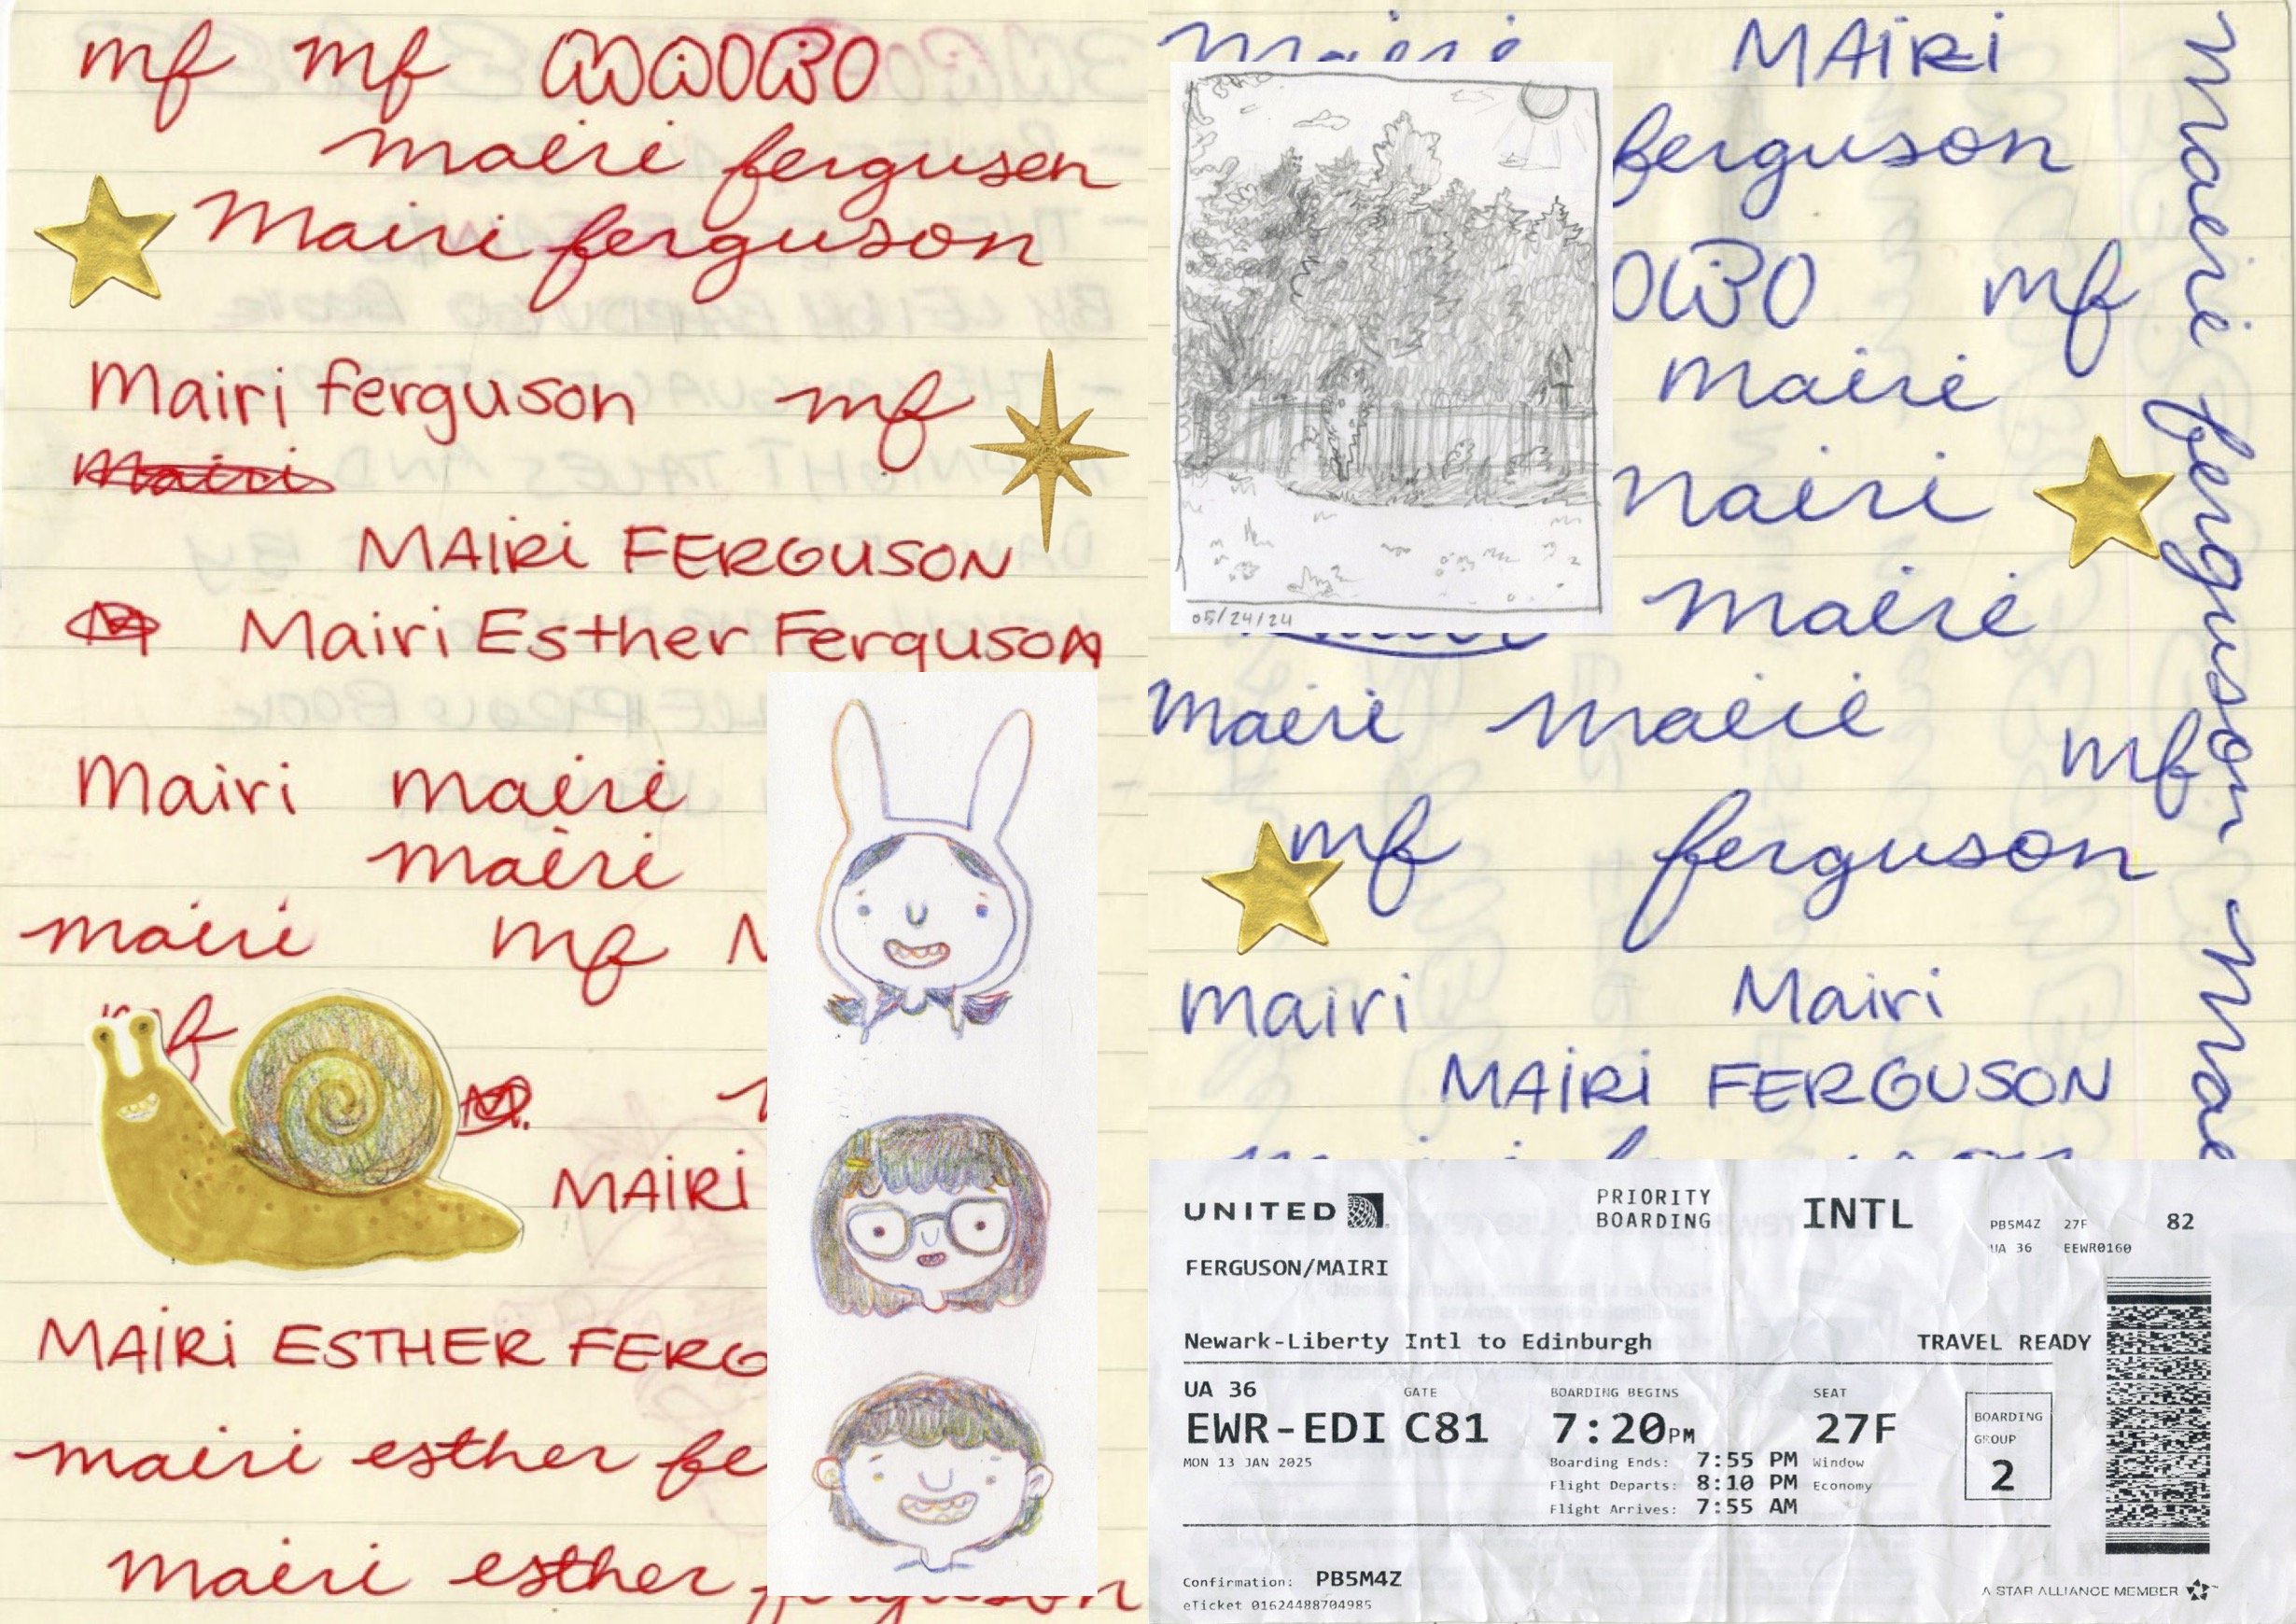 mf mf
mairi ferguson
Mairi ferguson
Mairi ferguson mf
Mairi
MAIRI FERGUSON
M Mairi Esther Ferguson
Mairi mairi
mairi
mairi mf
mf
M
MAIRI
MAIRI ESTHER FERG
mairi esther fe
mairi esther ferguson
mairi MAIRI
ferguson
mf
mairi
mairi
mairi
Mairi mairi
mf
mf ferguson
mairi Mairi
MAIRI FERGUSON
mairi ferguson mai
05/24/24
UNITED PRIORITY BOARDING INTL PB5M4Z 27F 82
UA 36 EEWR0160
FERGUSON/MAIRI
Newark-Liberty Intl to Edinburgh TRAVEL READY
UA 36 GATE BOARDING BEGINS SEAT
EWR-EDI C81 7:20PM 27F BOARDING GROUP 2
MON 13 JAN 2025
Boarding Ends: 7:55 PM Window
Flight Departs: 8:10 PM Economy
Flight Arrives: 7:55 AM
Confirmation: PB5M4Z
eTicket 01624488704985
A STAR ALLIANCE MEMBER